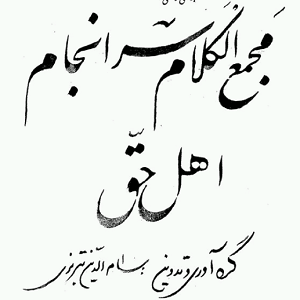 مجمع الکلام سرانجام
اهل حق
گردآوری و تدوین بسام الدین تبریزی